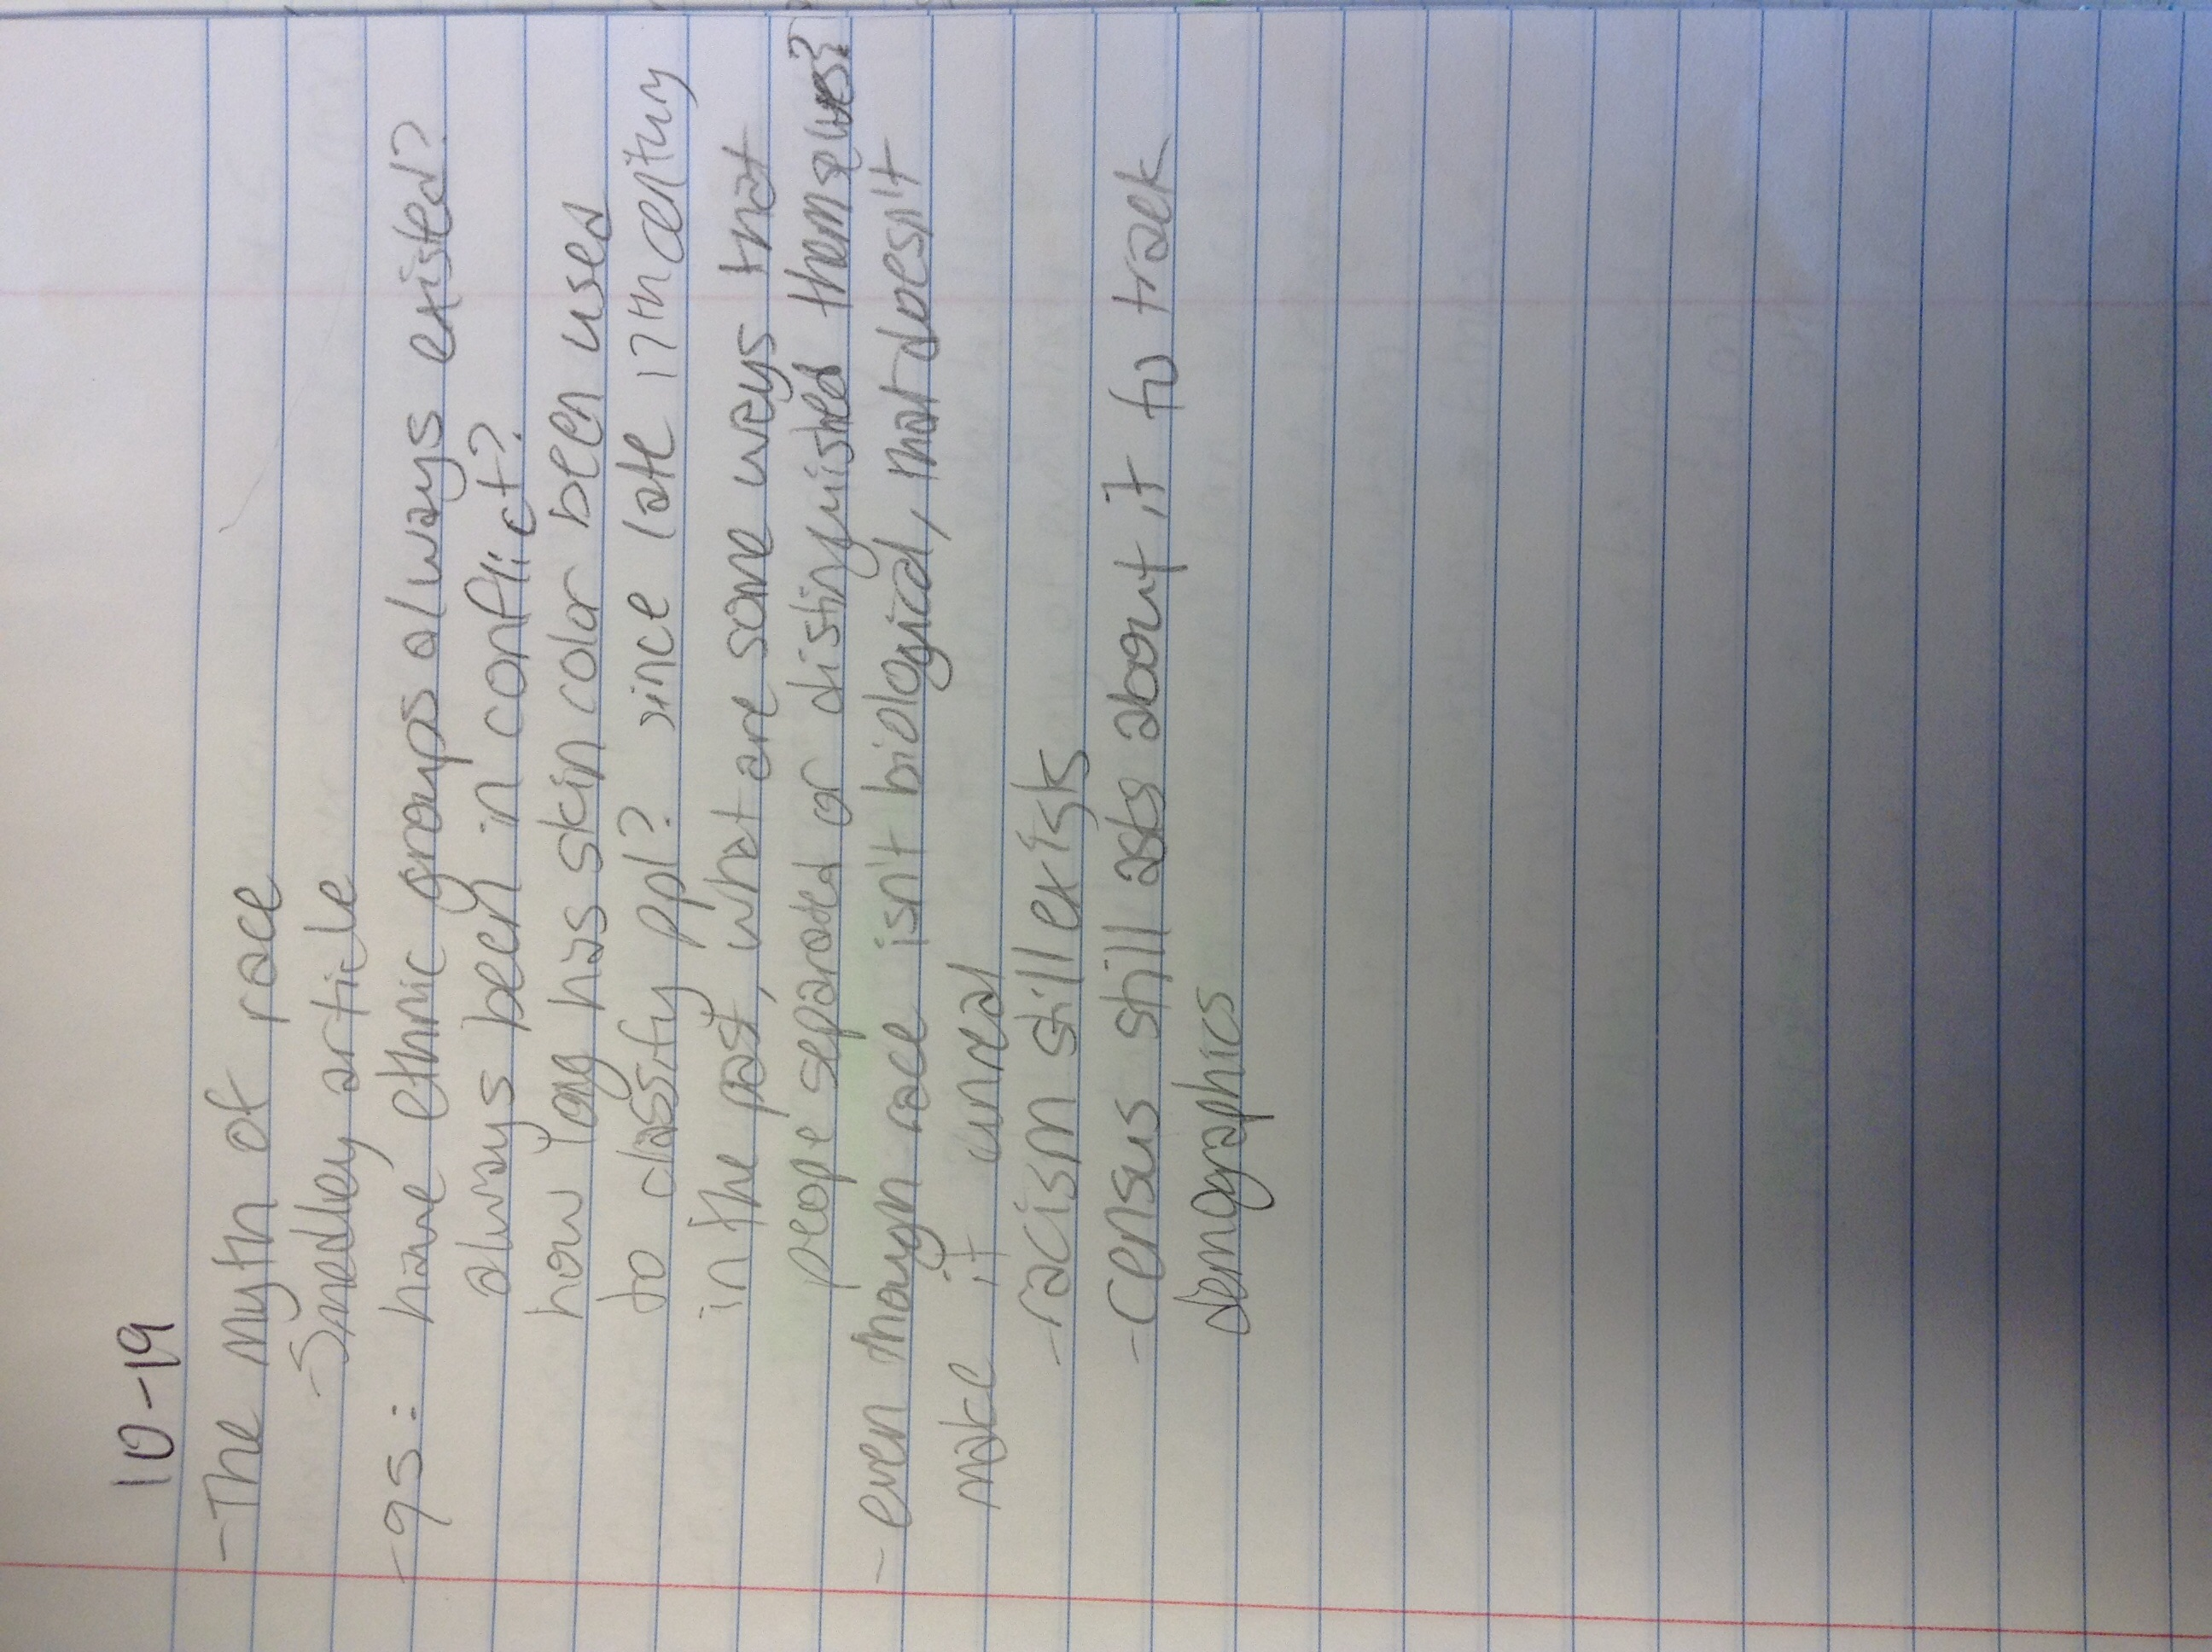 10-19
- The myth of race
- Smedley article
- qs: have ethnic groups always existed?
always been in conflict?
how long has skin color been used
to classify ppl? since late 17th century
in the past, what are some ways that
people separated or distinguished themselves?
- even though race isn't biological, that doesn't
make it unreal
- racism still exists
- census still asks about it to track
demographics